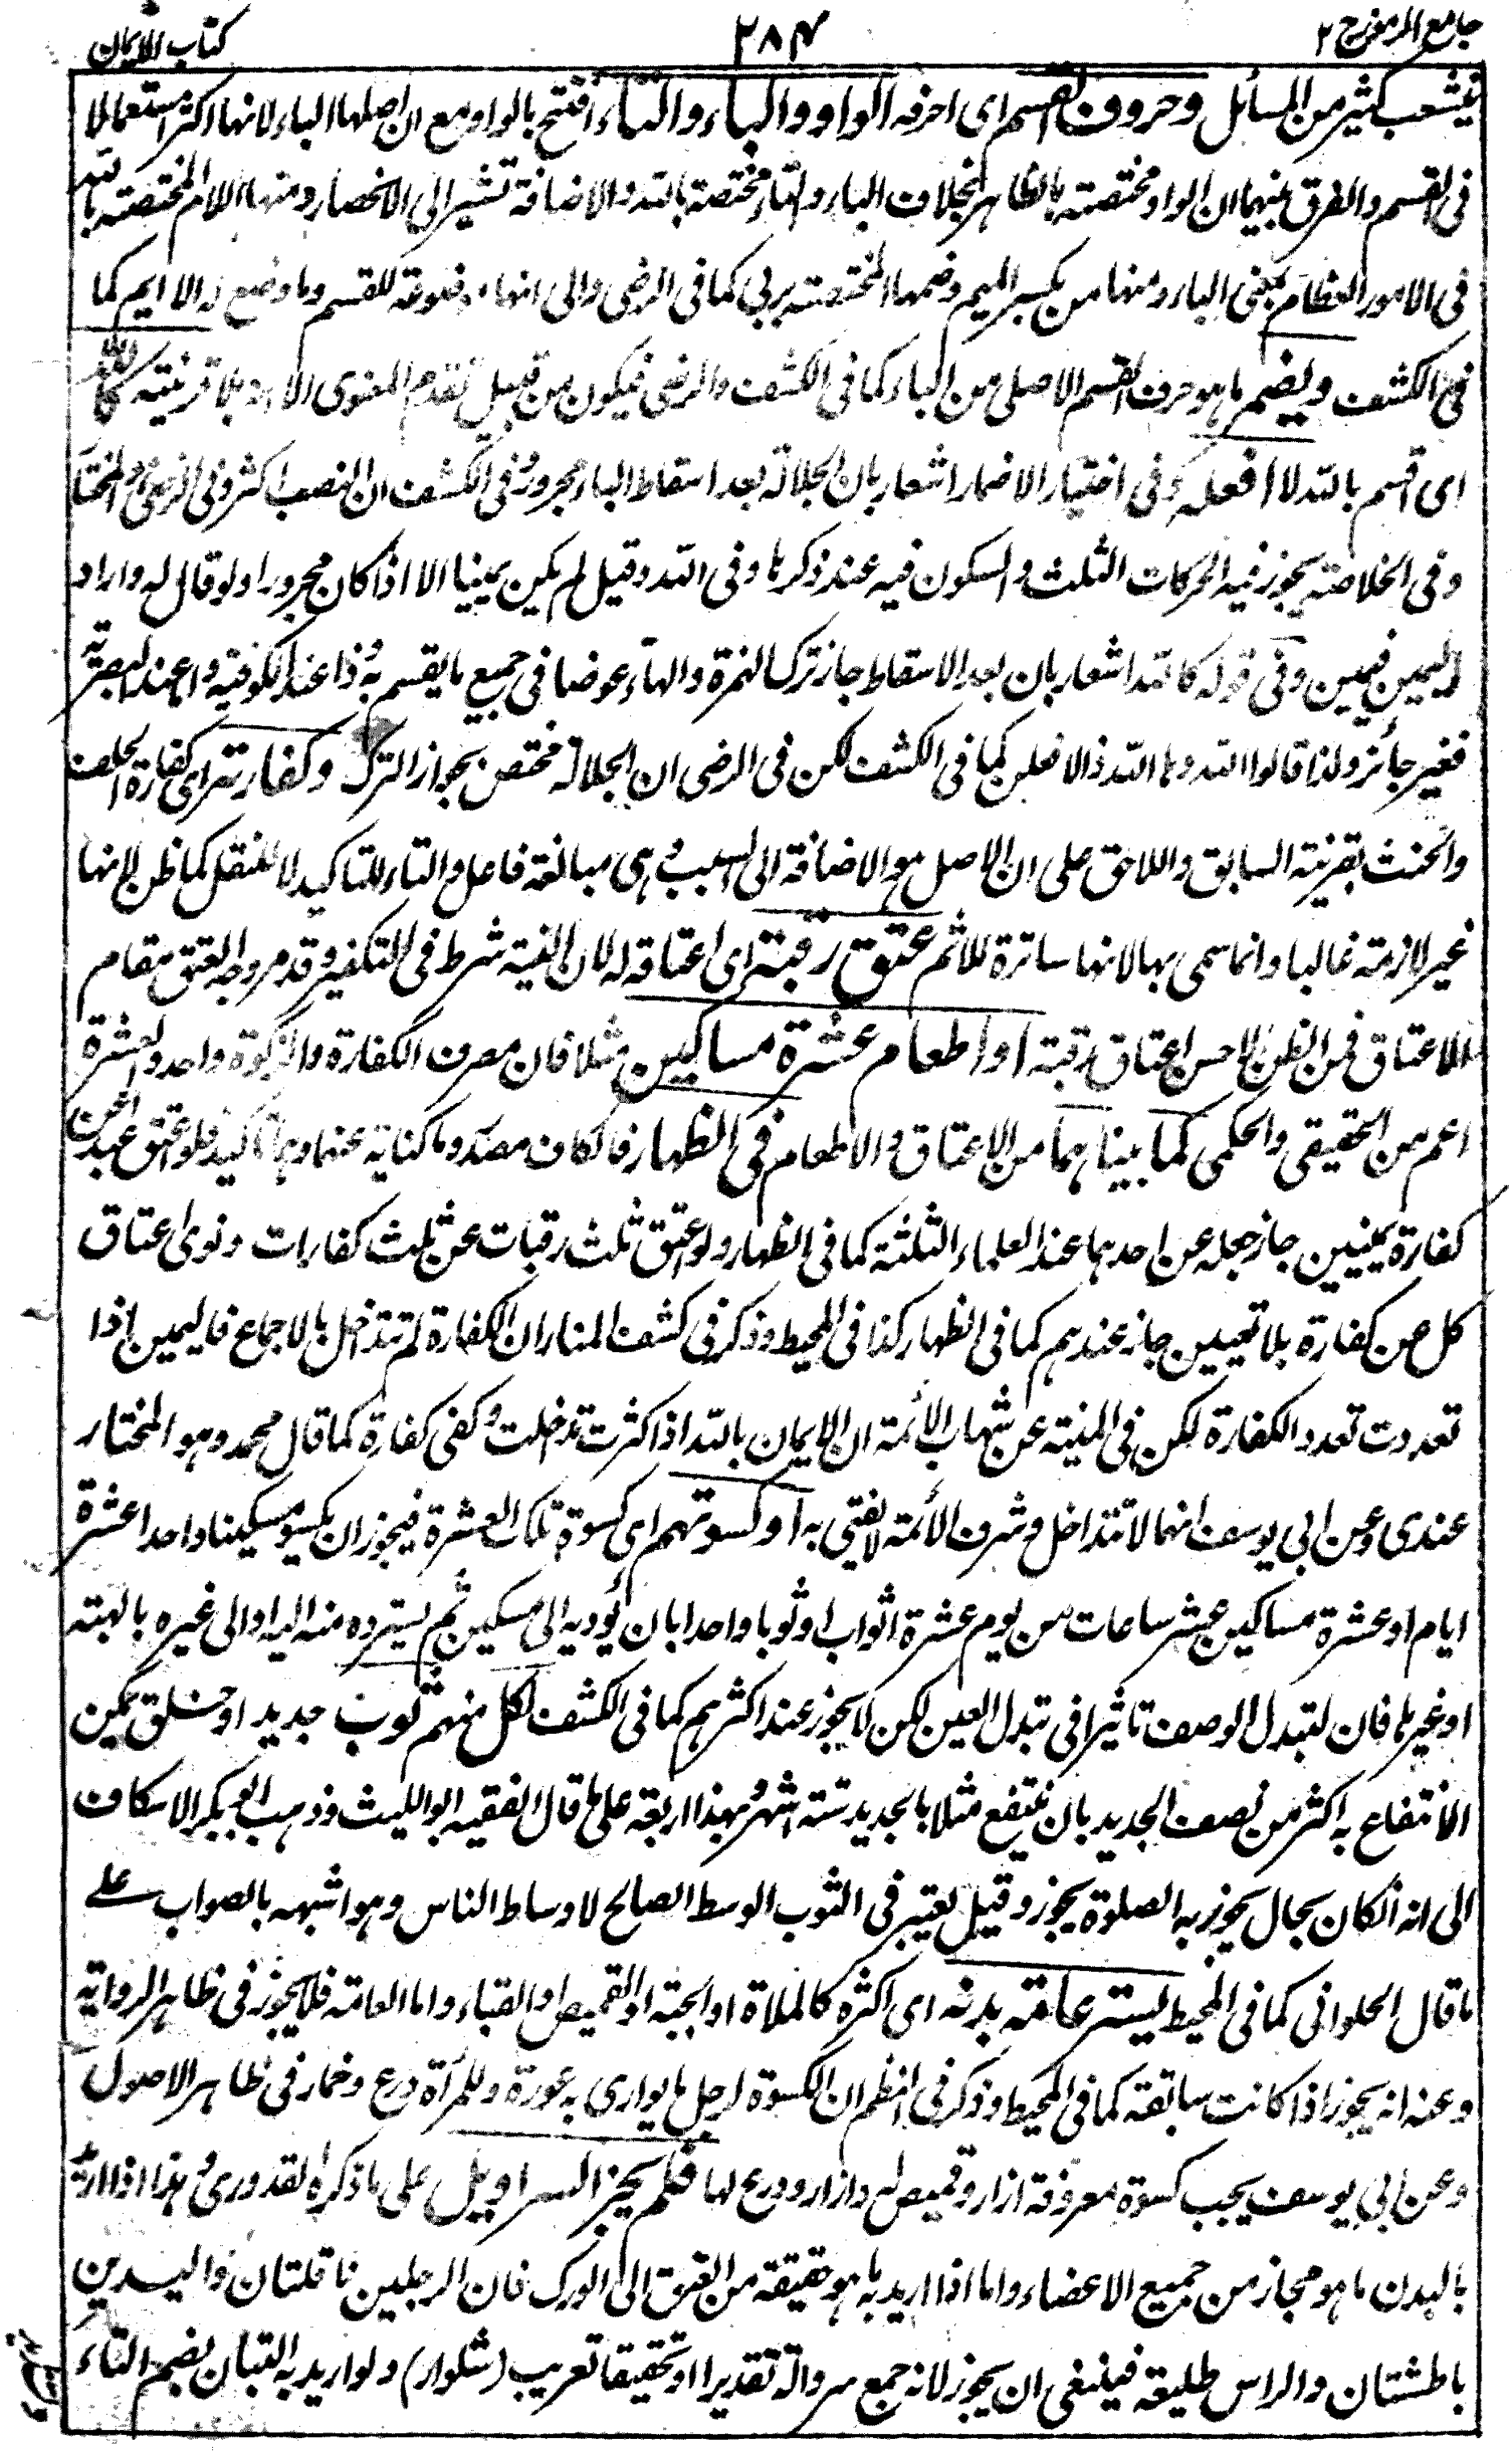 جامع الرموز ج ٢
٢٨٤
كتاب الايمان
فيتشعب كثير من المسائل وحروف القسم اى احرفه الواو والباء والتاء افتتح بالواو مع ان اصلها الباء لانها اكثر استعمالا
فى القسم والفرق بينهما ان الواو مختصة بالظاهر بخلاف الباء والتاء مختصة بالله والاضافة تشير الى الانحصار ومنها اللام المختصة بالله
فى الامور العظام بمعنى الباء ومنها من بكسر الميم وضمها المختصة بربى كما فى الرضى والى انها موضوعة للقسم وما وضع له الا ايم كما
فى الكشف ويضمر ما هو حرف القسم الاصلى من الباء كما فى الكشف والرضى فيكون من قبيل تقدم المعنوى بلا قرينة كالله
اى اقسم بالله لا افعله وفى اختيار الاضمار اشعار بان الجلالة بعد اسقاط الباء مجرور وفى الكشف ان النصب اكثر وفى الرضى هو المختار
وفى الخلاصة يجوز فيه الحركات الثلث والسكون فيه عند ذكرها وفى الله وقيل لم يكن يمينا الا اذا كان مجرورا ولو قال له واراد
اليمين فيمين وفى قوله كالله اشعار بان بعد الاسقاط جاز ترك الهمزة والهاء عوضا فى جميع ما يقسم به وذا عند الكوفية واما عند البصرية
فغير جائز ولذا قالوا الله وها الله ذا لافعلن كما فى الكشف لكن فى الرضى ان الجلالة مختص بجواز الترك وكفارته اى كفارة الحلف
والحنث بقرينة السابق واللاحق على ان الاصل هو الاضافة الى السبب وهى مبالغة فاعل والتاء للتاكيد لا للنقل كما ظن لانها
غير لازمة غالبا وانما سمى بها لانها ساترة للاثم عتق رقبة اى اعتاقه له لان النية شرط فى التكفير وقد مر وجه العتق مقام
الاعتاق فمن الظن الاحسن اعتاق رقبة او اطعام عشرة مساكين مثلا فان مصرف الكفارة والزكوة واحد والعشرة
اعم من الحقيقى والحكمى كما بينا هما من الاعتاق والاطعام فى الظهار فالكاف مصدر وما كناية عنهما وهما تاكيد فلو اعتق عبدا عن
كفارة يمينين جاز جعله عن احدهما عند العلماء الثلثة كما فى الظهار ولو اعتق ثلث رقبات عن ثلث كفارات ونوى اعتاق
كل عن كفارة بلا تعيين جاز عندهم كما فى الظهار كذا فى المحيط وذكر فى كشف المنار ان الكفارة لم تتداخل بالاجماع فاليمين اذا
تعددت تعدد الكفارة لكن فى المنية عن شهاب الائمة ان الايمان بالله اذا كثرت تداخلت وكفى كفارة كما قال محمد وهو المختار
عندى وعن ابى يوسف انهما لا تتداخل وشرف الائمة لا يفتى به او كسوتهم اى كسوة تلك العشرة فيجوز ان يكسو مسكينا واحدا عشرة
ايام او عشرة مساكين عشر ساعات من يوم عشرة اثواب او ثوبا واحدا بان يؤديه الى مسكين ثم يسترده منه اليه او الى غيره بالهبة
او غيرها فان لتبدل الوصف تاثيرا فى تبدل العين لكن لا يجوز عند اكثرهم كما فى الكشف لكل منهم ثوب جديد او خلق يمكن
الانتفاع به اكثر من نصف الجديد بان ينتفع مثلا بالجديد ستة اشهر وبهذا اربعة على ما قال الفقيه ابو الليث وذهب ابو بكر الاسكاف
الى انه انكان بحال يجوز به الصلوة يجوز وقيل يعتبر فى الثوب الوسط الصالح لاوساط الناس وهو اشبهه بالصواب على
ما قال الحلوانى كما فى المحيط يستر عامة بدنه اى اكثره كالملاة او الجبة او القميص او القباء واما العامة فلا يجوز فى ظاهر الرواية
وعنه انه يجوز اذا كانت سابقة كما فى المحيط وذكر فى النظم ان الكسوة لرجل ما يوارى به عورة وللمرأة درع وخمار فى ظاهر الاصول
وعن ابى يوسف يجب كسوة معروفة ازار وقميص له وازار ودرع لها فلم يجز السراويل على ما ذكره القدورى وهذا اذا اريد
بالبدن ما هو مجاز من جميع الاعضاء واما اذا اريد به ما هو حقيقة من العنق الى الورك فان الرجلين ناقلتان واليدين
باطشتان والراس طليعة فينبغى ان يجوز لانه جمع سروالة تقديرا او تحقيقا تعريب (شلوار) ولو اريد به التبان بضم التاء